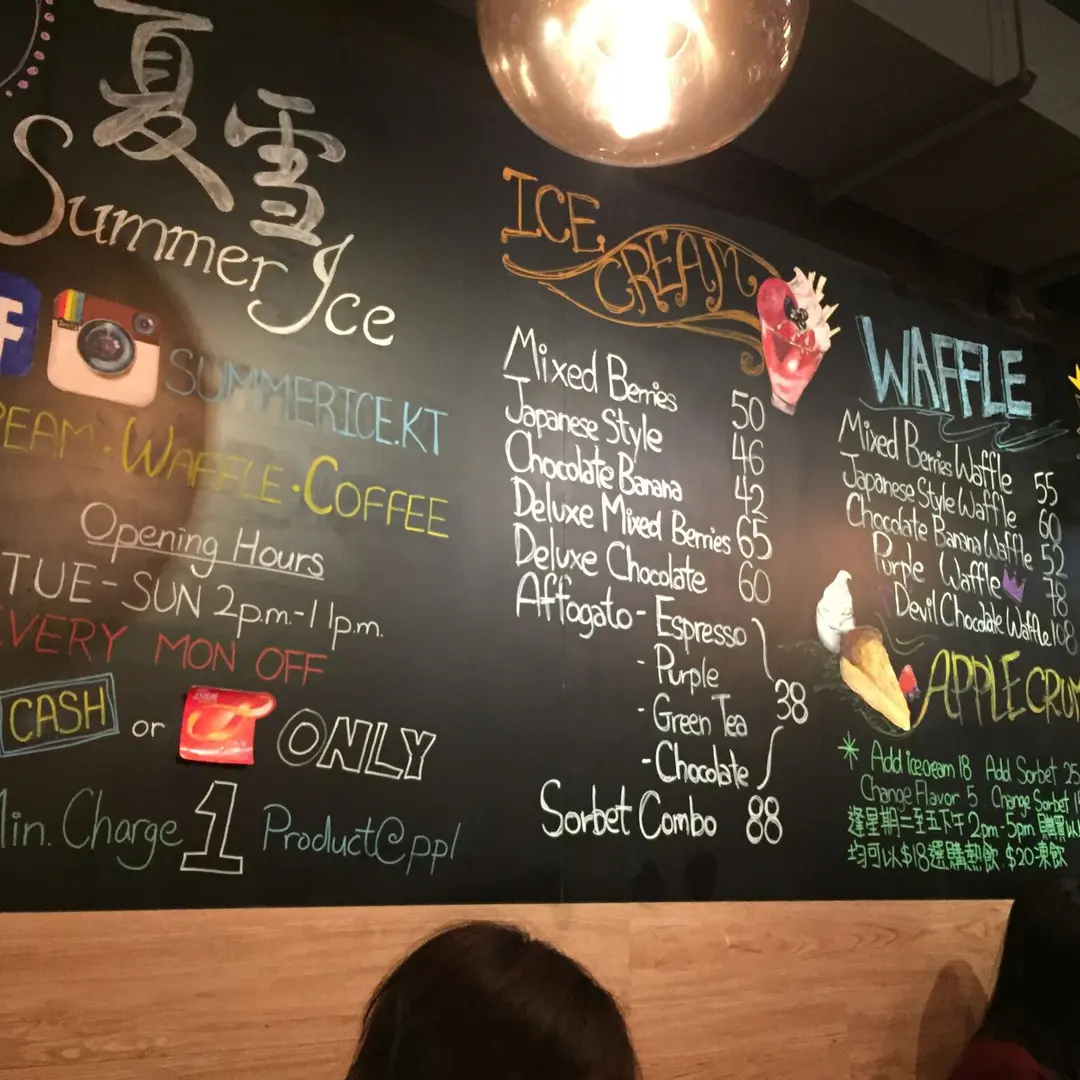 夏雪
Summer Ice
f
SUMMERICE.KT
REAM · WAFFLE · COFFEE
Opening Hours
TUE - SUN 2p.m.-11p.m.
EVERY MON OFF
CASH or ONLY
Min. Charge 1 Product@ppl
ICE CREAM
Mixed Berries 50
Japanese Style 46
Chocolate Banana 42
Deluxe Mixed Berries 65
Deluxe Chocolate 60
Affogato - Espresso
- Purple
- Green Tea
- Chocolate
38
Sorbet Combo 88
WAFFLE
Mixed Berries Waffle 55
Japanese Style Waffle 60
Chocolate Banana Waffle 52
Purple Waffle 78
Devil Chocolate Waffle 108
APPLE CRUM
* Add icecream 18 Add Sorbet 25
Change Flavor 5 Change Sorbet
逢星期二至五下午2pm-5pm 購買以
均可以$18選購熱飲 $20凍飲